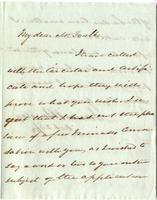 My dear Mr.
I have called
with the Circular and Certifi-
cate and hope they will
prove what you wished. I
good that I had not the plea-
sure of a few minutes conver-
sation with you, as I wanted to
say a word or two to you on the
subject of the application